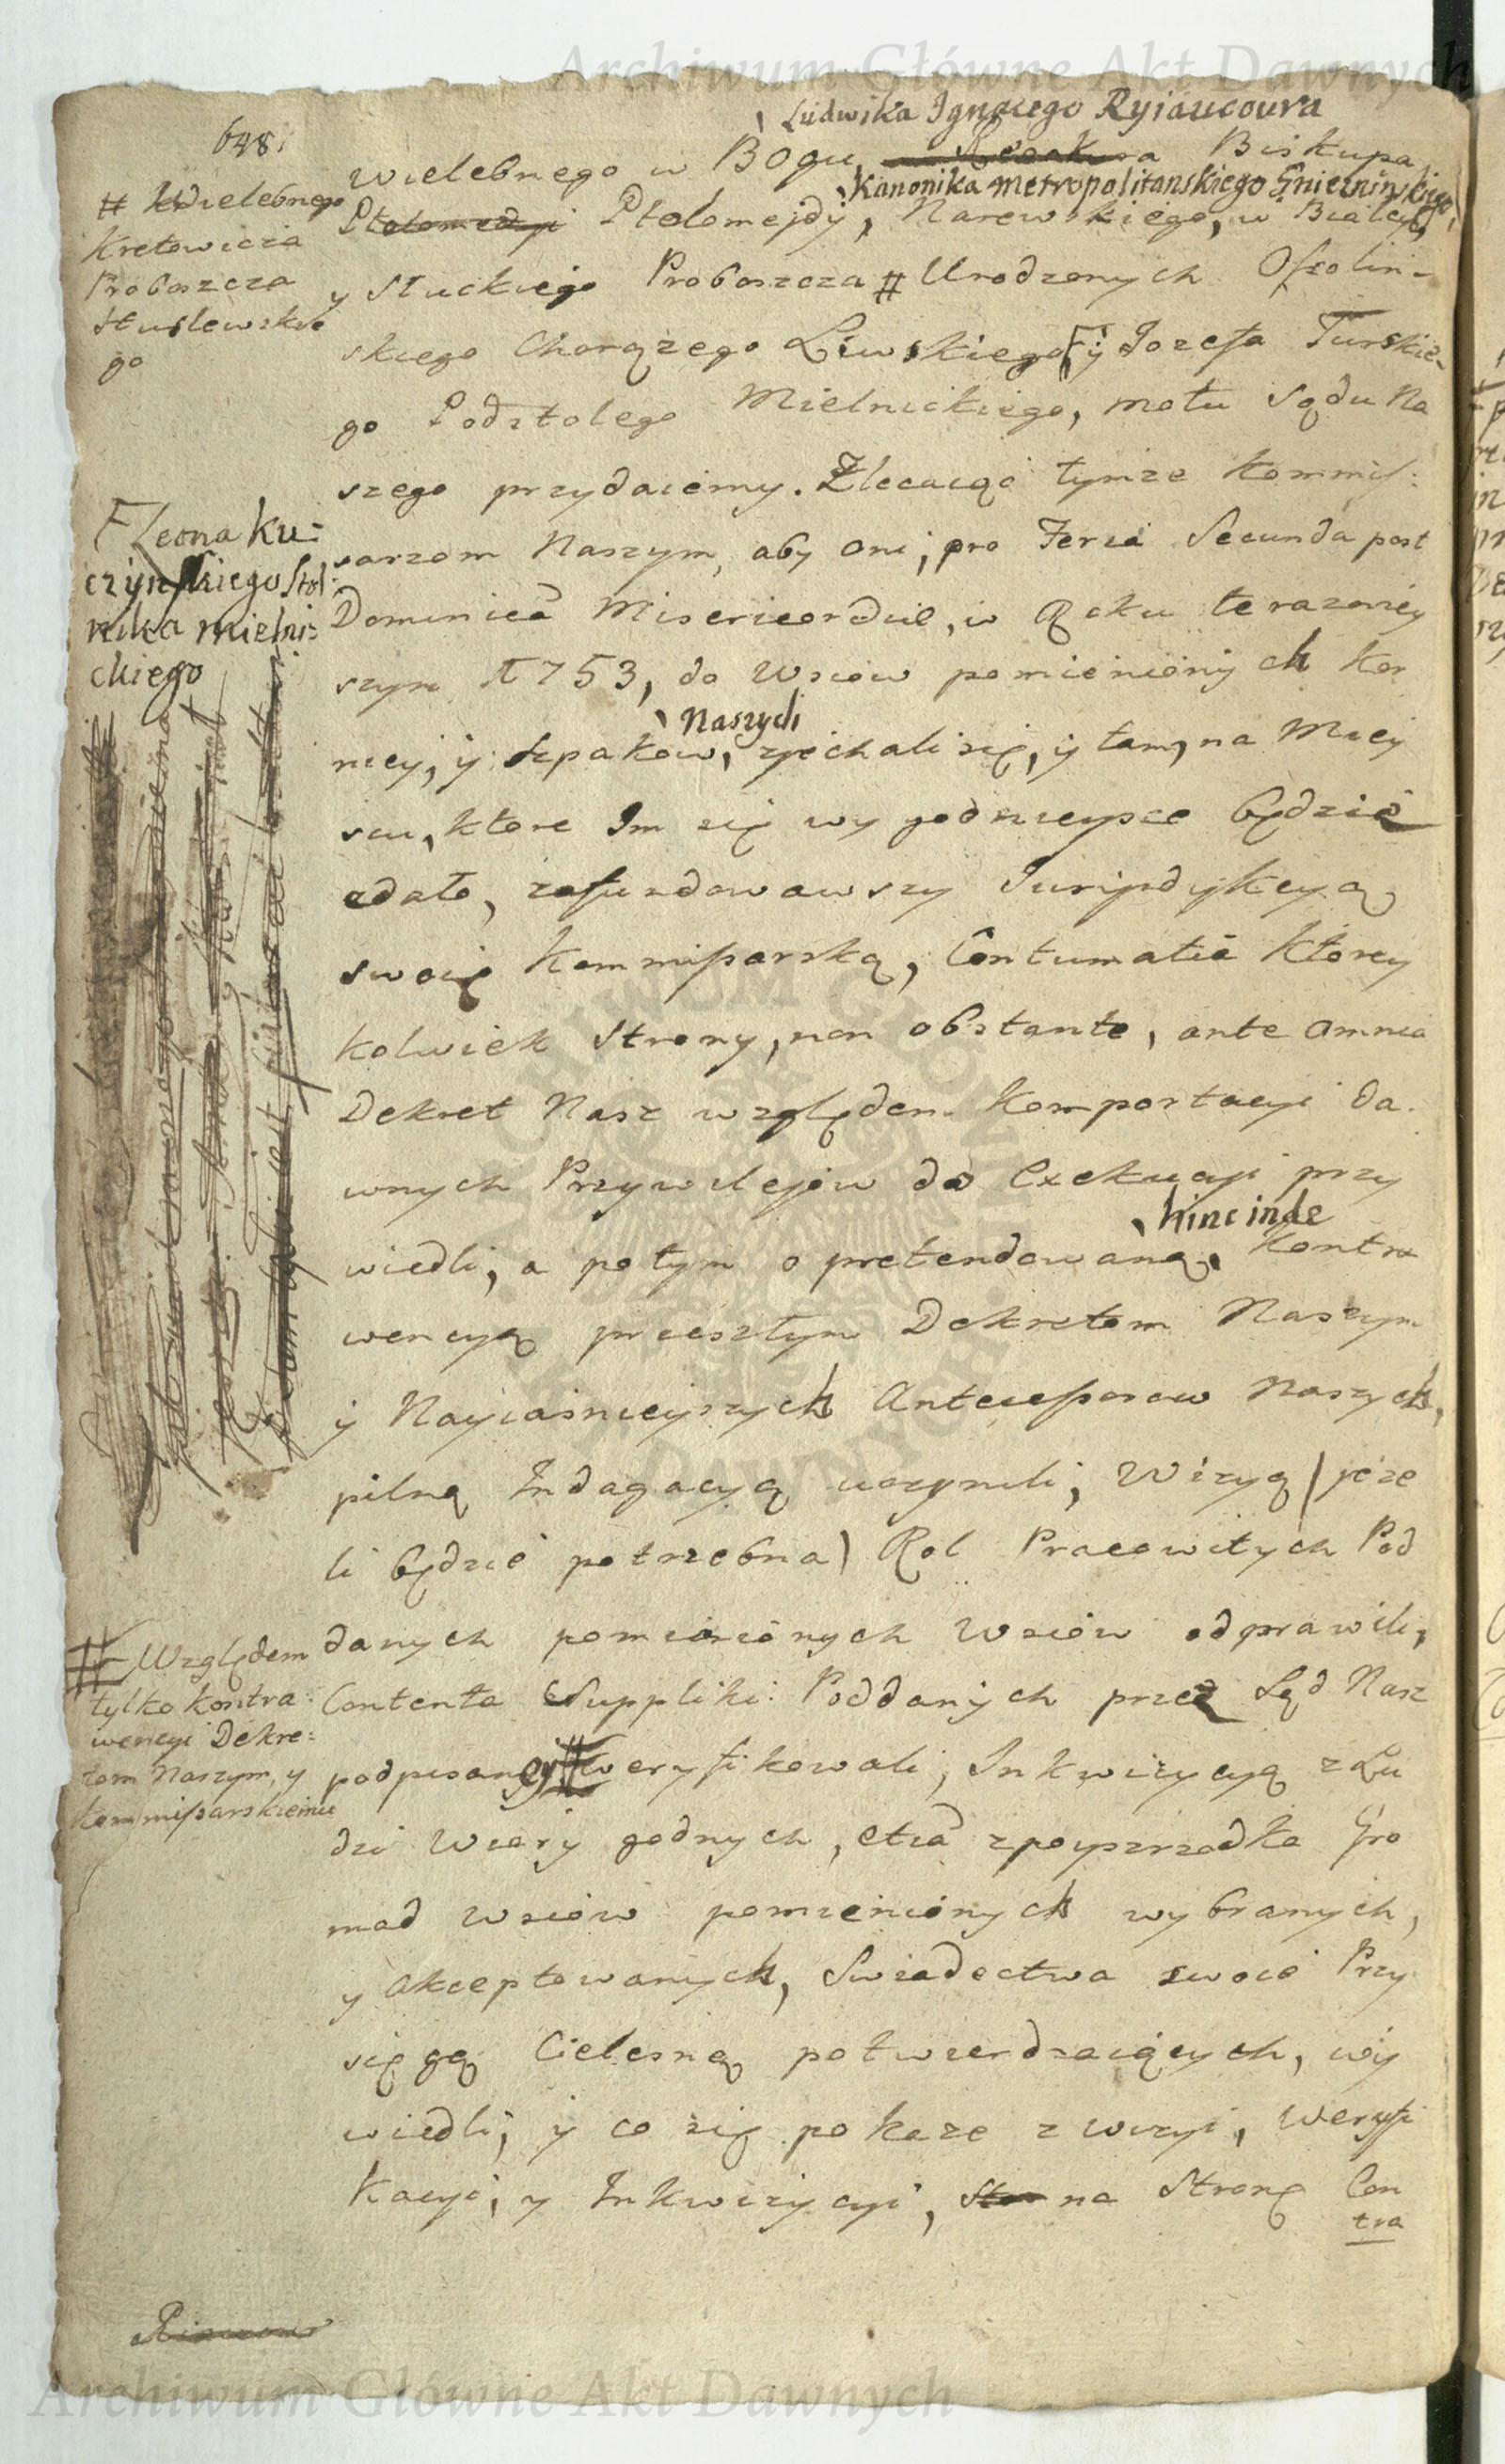 Archiwum Główne Akt Dawnych
648.
Ludwika Ignacego Ryiaucoura
wielebnego w Bogu Biskupa
Kanonika Metropolitanskiego Gnieznińskiego
Ptolomejdy, Narewskiego, w Białey,
y Sluckiego Proboszcza # Urodzonych Ossolin-
skiego Chorązego Liwskiego y Jozefa Turskie-
go Podstolego Mielnickiego, motu Sądu Na
szego przydaiemy. Zlecaiąc tymze Kommis:
sarzom Naszym, aby oni, pro Feria Secunda post
Dominicā Misericordiæ, w Roku terazniey
szym 1753, do Wsiow pomienionych Kor
Naszych
nicy, y Szpakow, zjechali się, y tam, na Miey
scu, ktore Im się wygodnieysze będzie
zdało, zafundowawszy Juryzdykcyą
swoię Kommissarską, Contumatiā ktorey
kolwiek Strony, non obstante, ante omnia
Dekret Nasz względem Komportacyi da.
wnych Przywilejow do Exekucyi przy
hinc inde
wiedli, a potym o pretendowaną, Kontra
wencyą przeszłym Dekretom Naszym
y Nayiasnieyszych Antecessorow Naszych,
pilną Indagacyą uczynili, Wizyą / jeze
li będzie potrzebna / Rol Pracowitych Pod
danych pomienionych Wsiow odprawili,
Contenta Suppliki Poddanych przez Sąd Nasz
podpisaney # weryfikowali, Inkwizycyą z Lu
dzi Wiary godnych, etiā zposzrzodka Gro
mad Wsiow pomienionych wybranych,
y akceptowanych, Swiadectwa swoie Przy
sięgą Cielesną potwierdzaiących, wy
wiedli, y co się pokaze z wizyi, Weryfi
kacyi, y Inkwizycyi, na Stronę Con
tra
# Wielebnego
Kretowicza
Proboszcza
Huslewskie
go
F Leona Ku-
czynskiego Stol
nika Mielni:
ckiego
# Względem
tylko kontra
wencyi Dekre:
tom Naszym, y
Kommissarskiemu
Archiwum Główne Akt Dawnych